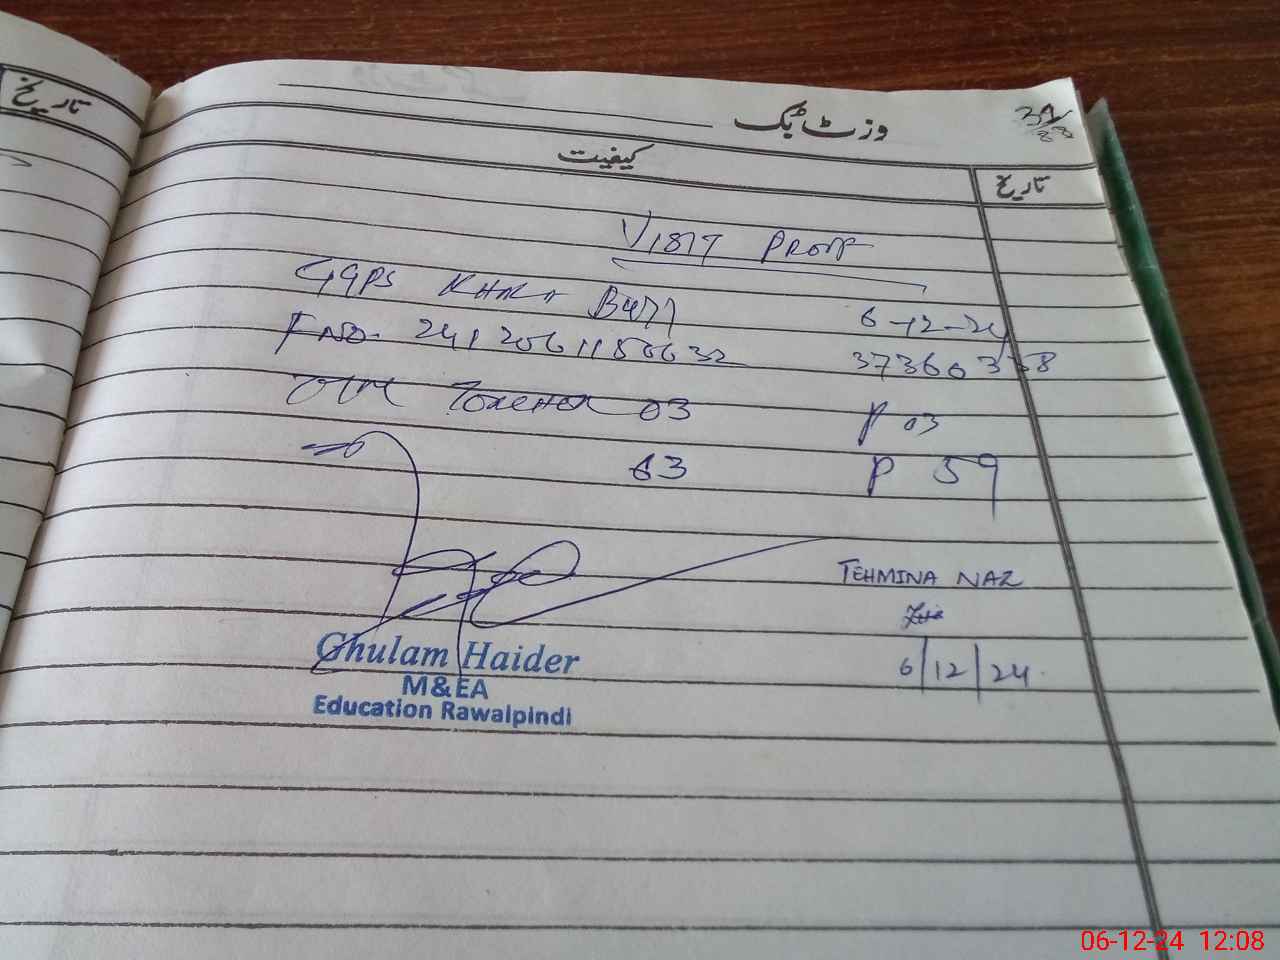 تاریخ
وزٹ بک
کیفیت
تاریخ
VISIT PROOF
GGPS
6-12-24
F NO. 2412061150632
37360358
Teacher 03
P 03
63
P 59
TEHMINA NAZ
6/12/24
Ghulam Haider
M&EA
Education Rawalpindi
06-12-24 12:08